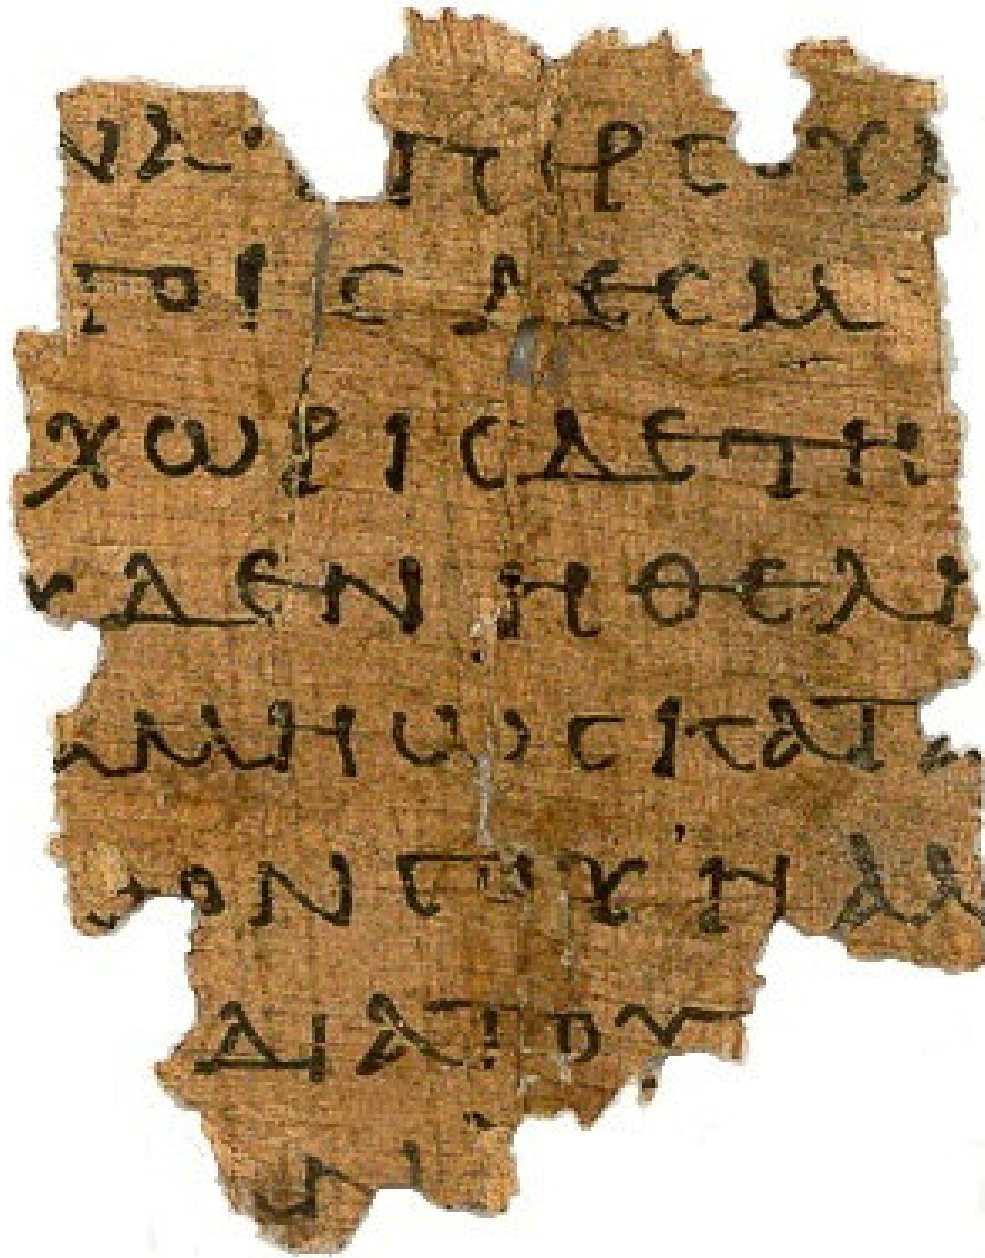 ΝΑ ΥΠΕΡ ϹΟΥ Μ
ΤΟΙϹ ΔΕϹΜ
ΧΩΡΙϹ ΔΕ ΤΗ
ΥΔΕΝ ΗΘΕΛΗ
ΑΜΗΩϹ ΚΑΤΑ
ΟΝ ϹΟΥ Η ΑΛ
ΔΙΑ ΤΟΥ